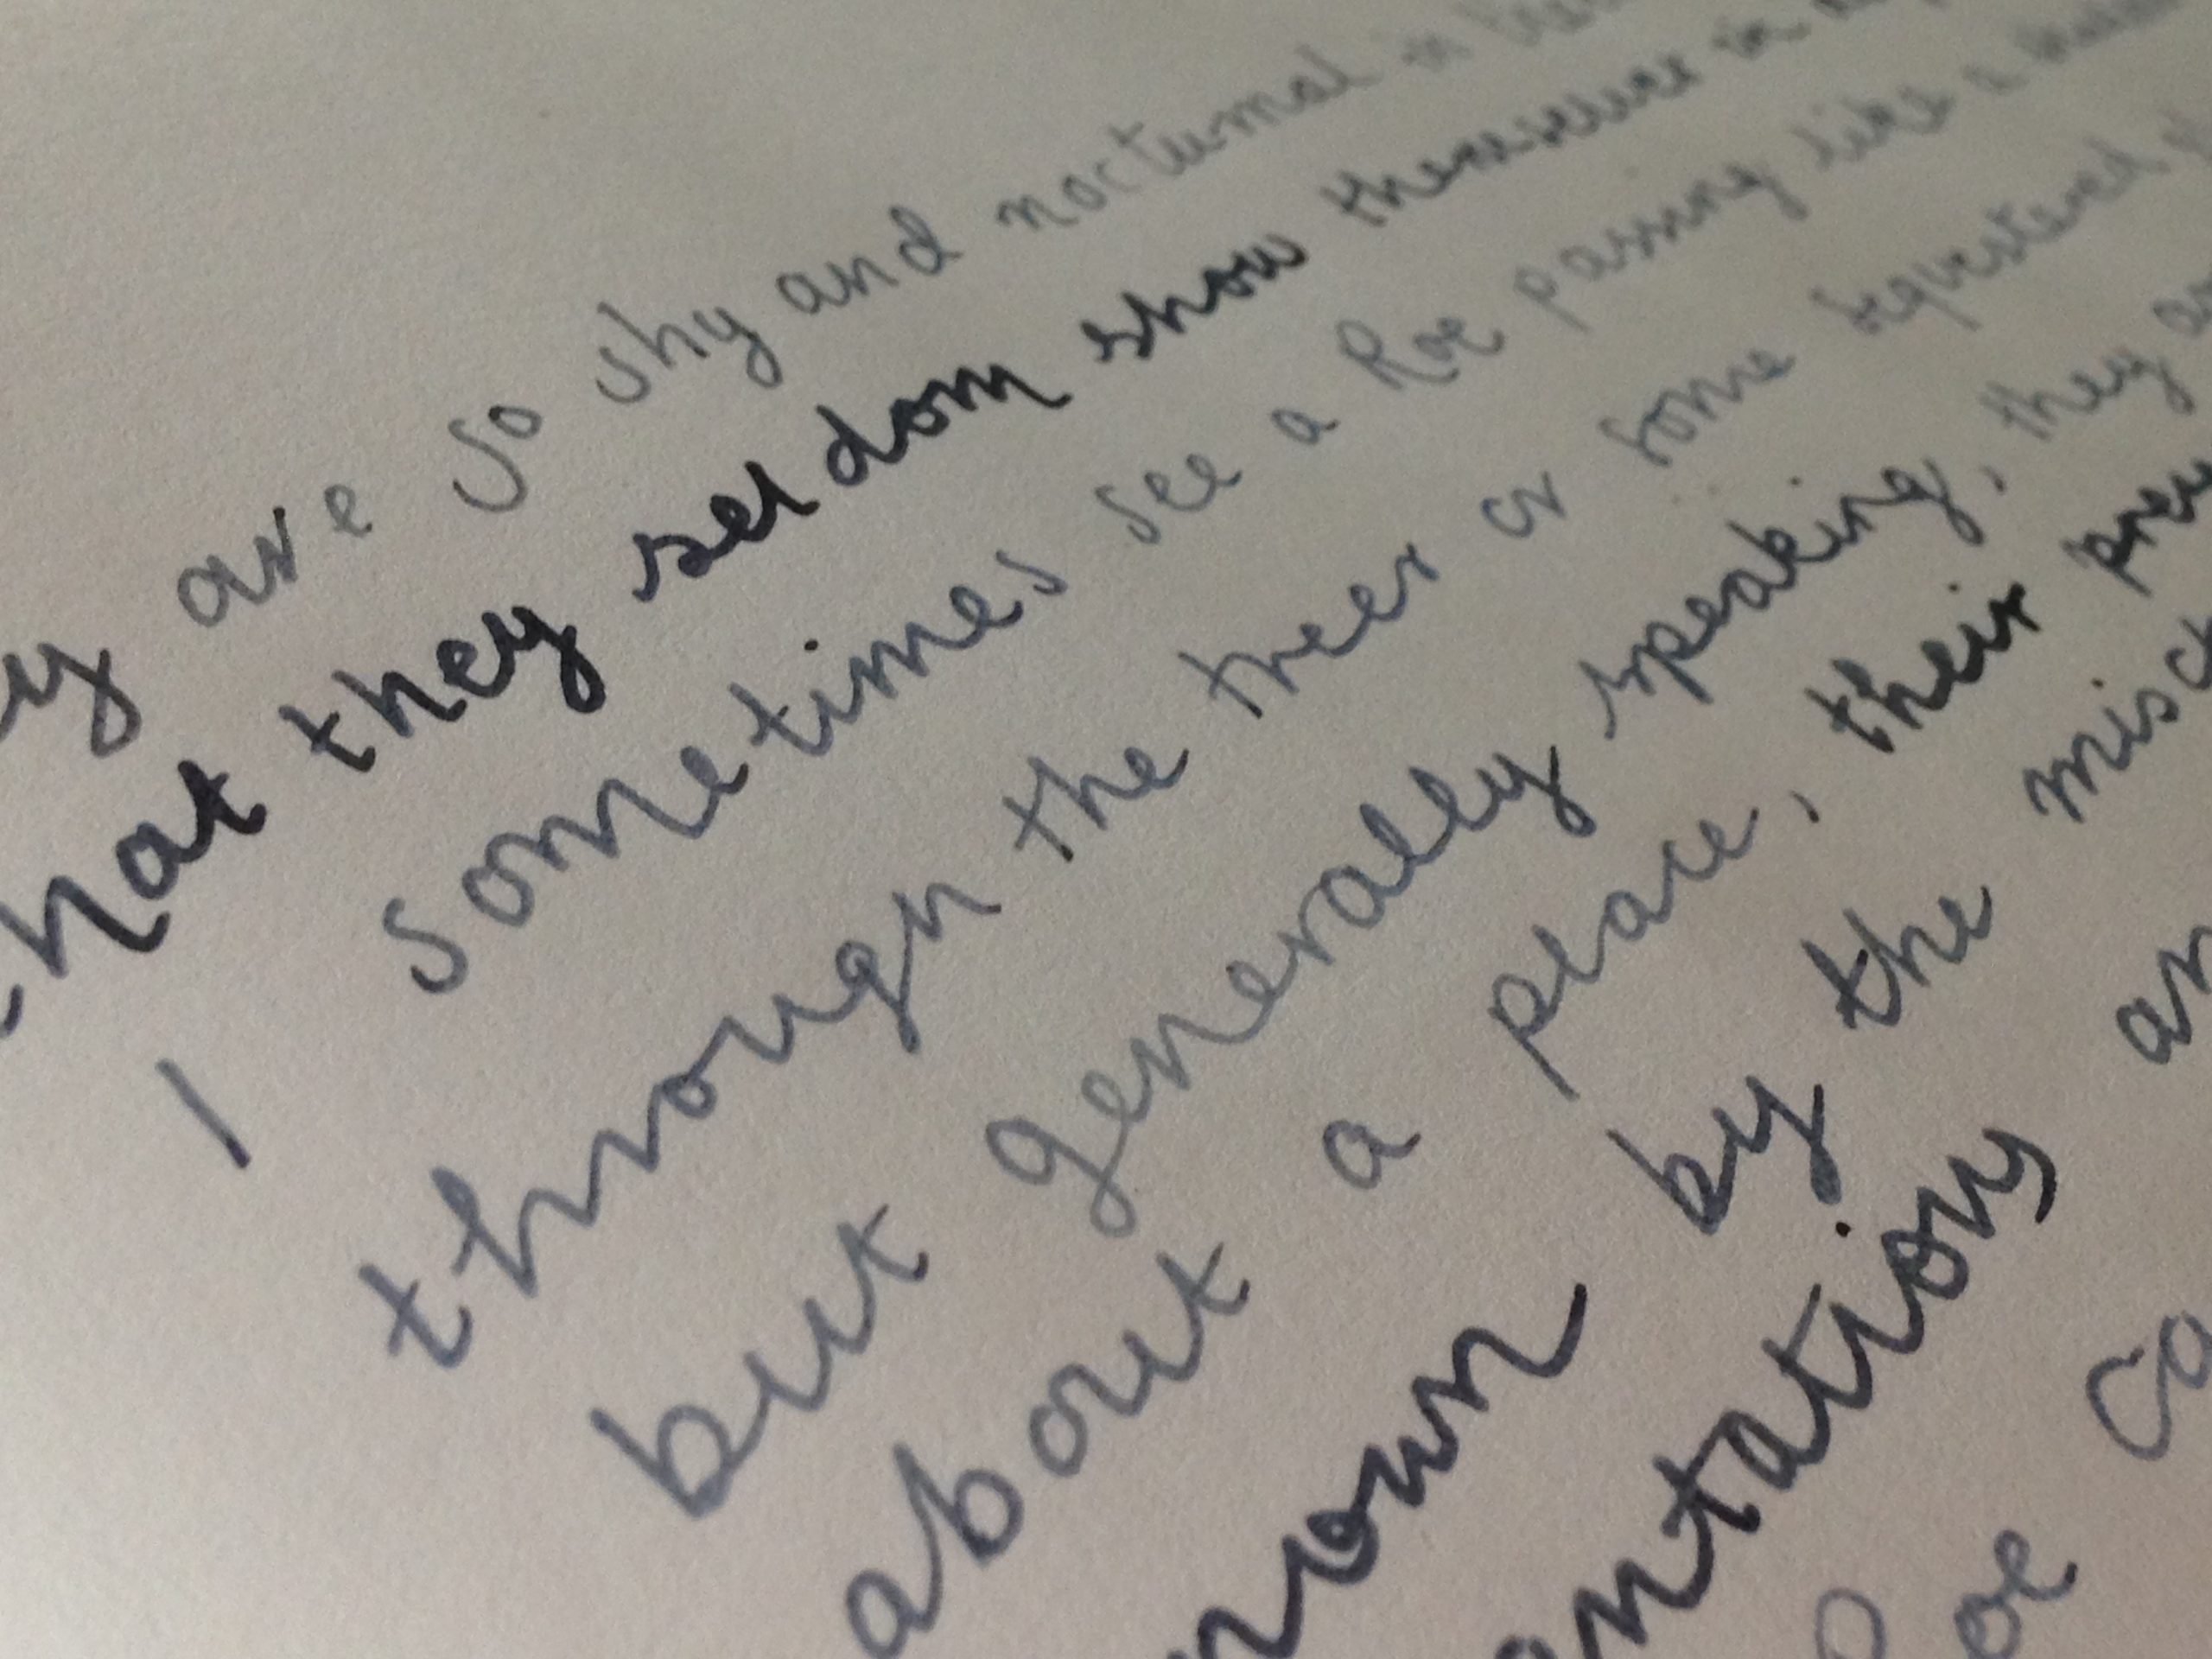 are so shy and nocturnal in
hat they seldom show themselves in
I sometimes see a Roe passing like a
through the trees or some sequestered
but generally speaking, they
about a place, their
nown by the misc
antations an
Roe ca